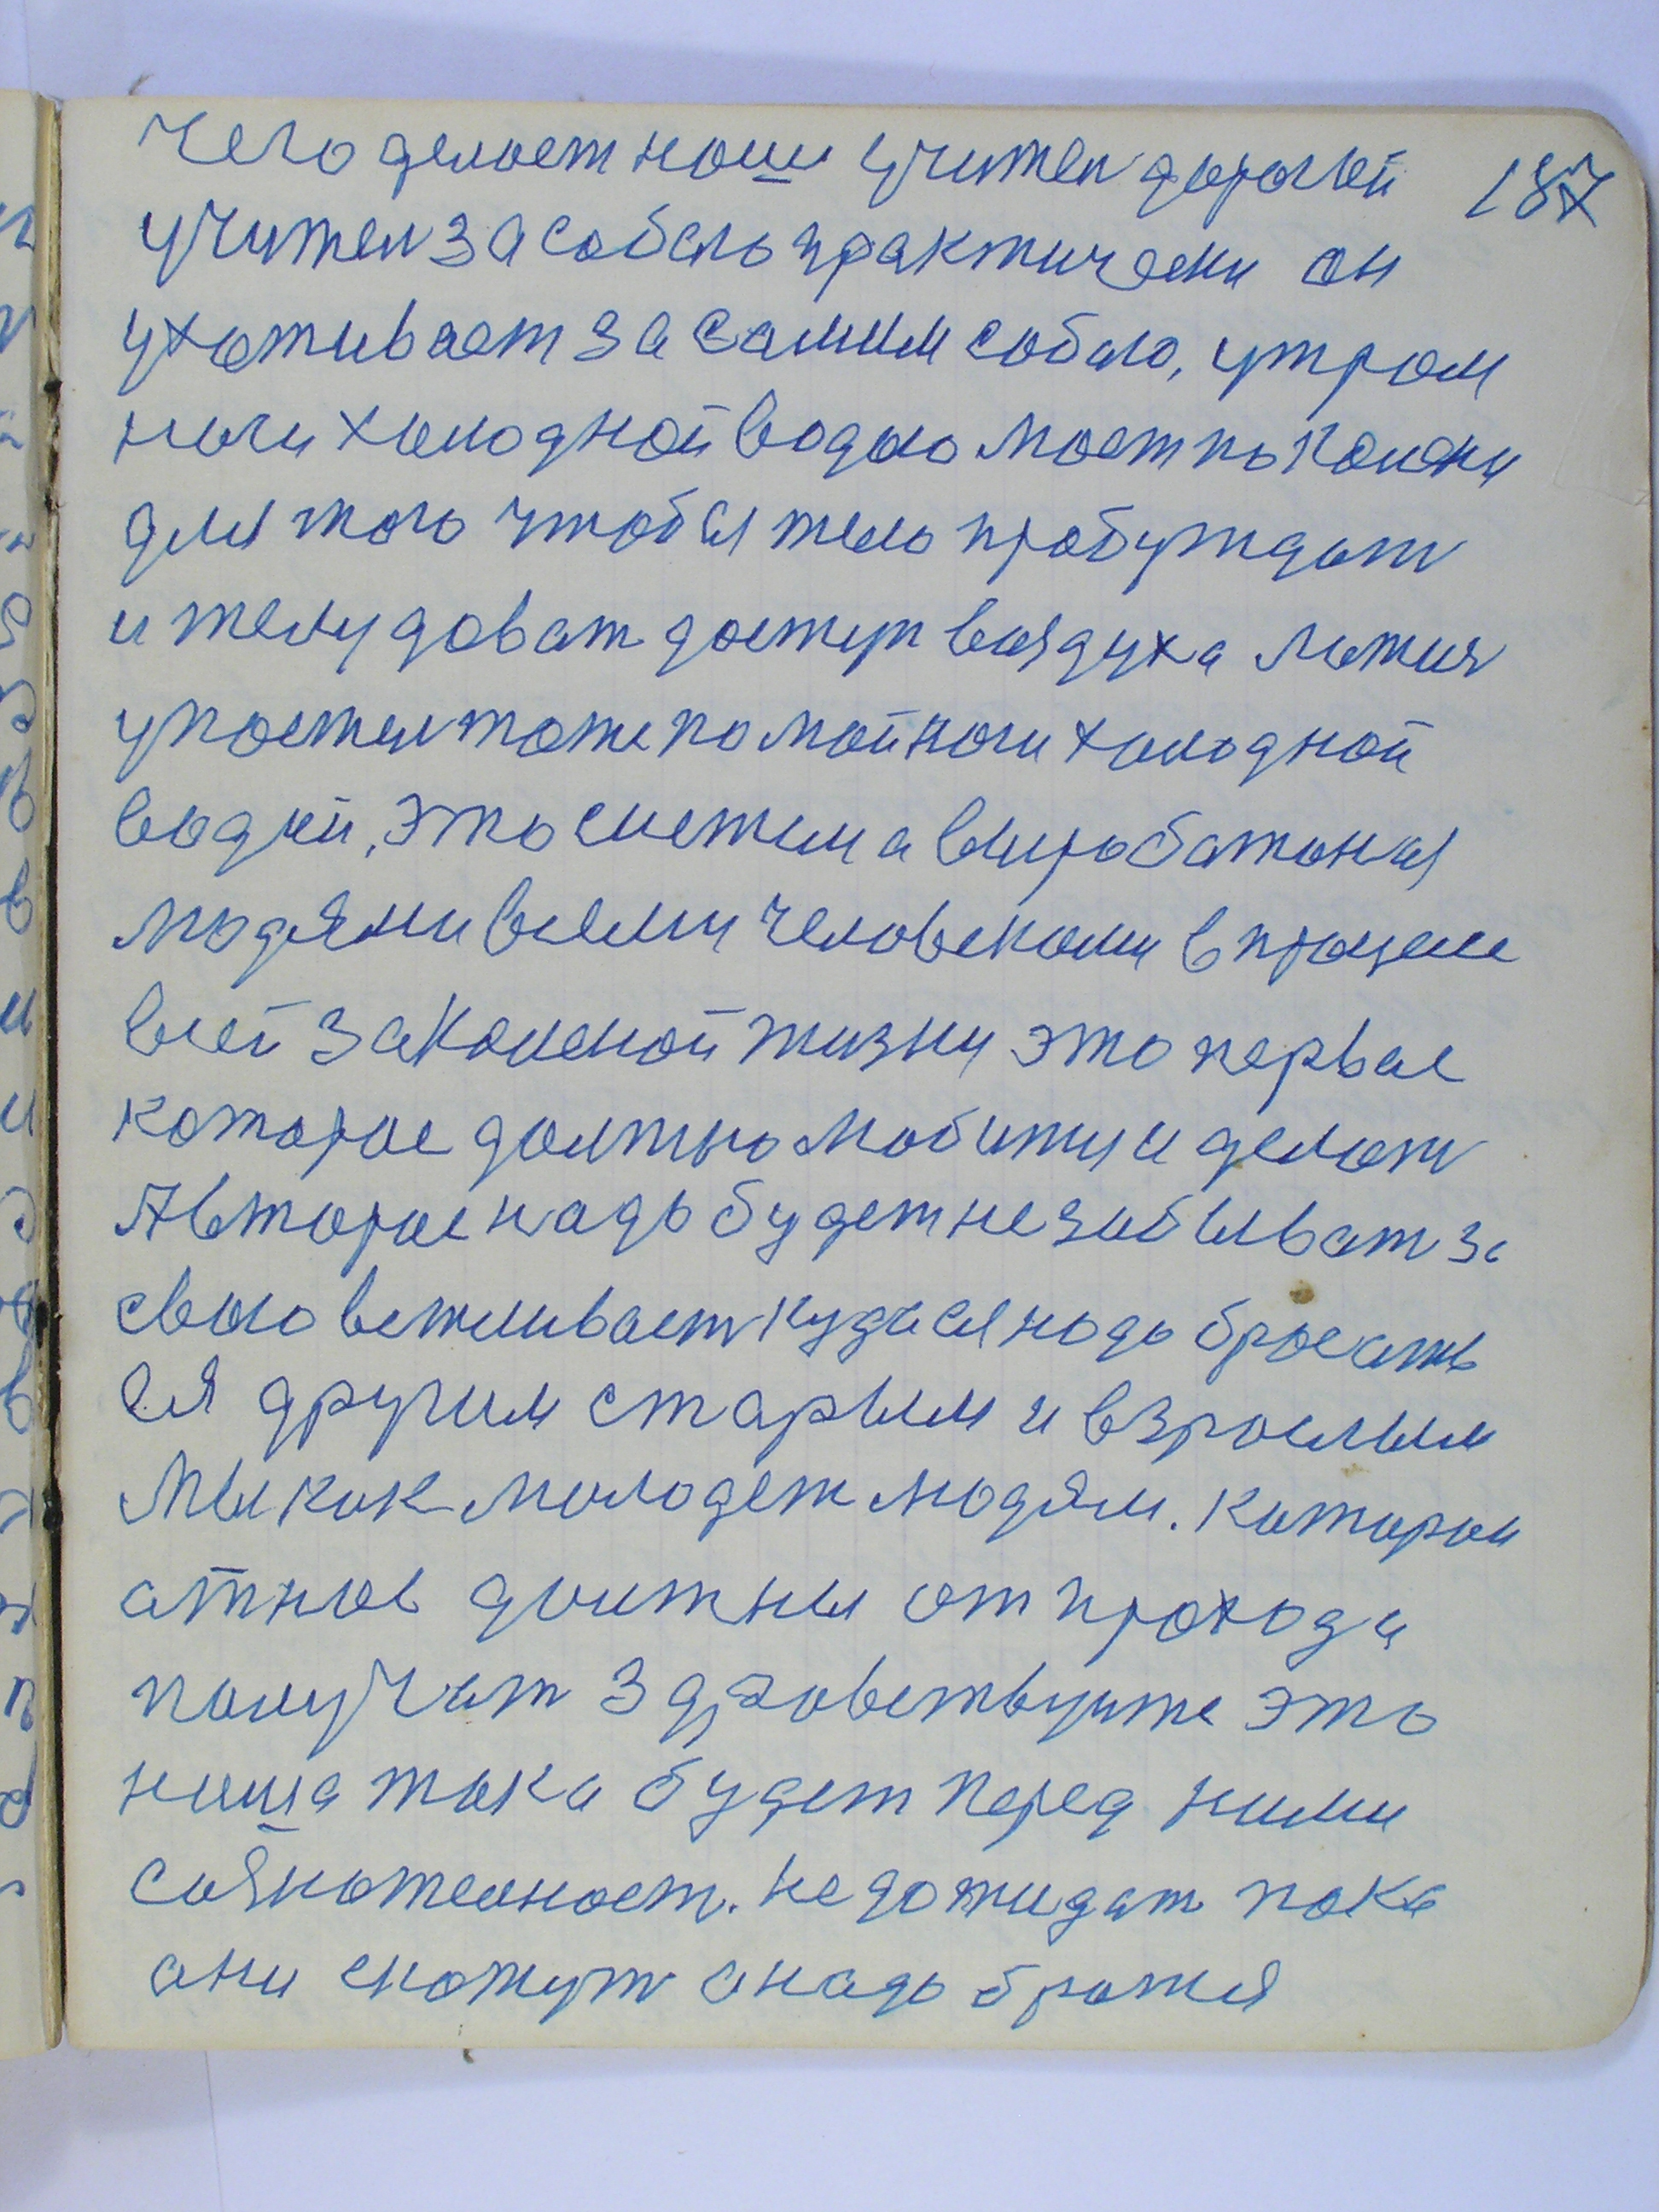 чего делает наш учител дорогой 187
учител за собою практически он
ухаживает за самим собою, утром
ноги холодной водою моет по колени
для того чтобы тело пробуждат
и телу доват доступ воздуха ложис
упостел тоже помой ноги холодной
водой, это система выработоная
людями всеми человеками в процессе
всей закононой жизни это первое
которое должно любится и делат
А второе надо будет не забыват за
свою вежливаст куда ся надо бросать
ся другим старым и взрослым
Мы как молодеж людям. которои
от нас должны от прохода
получат здравствуйте это
наша така будет перед ними
сознателност. не дожидат пока
они скажут а надо братся